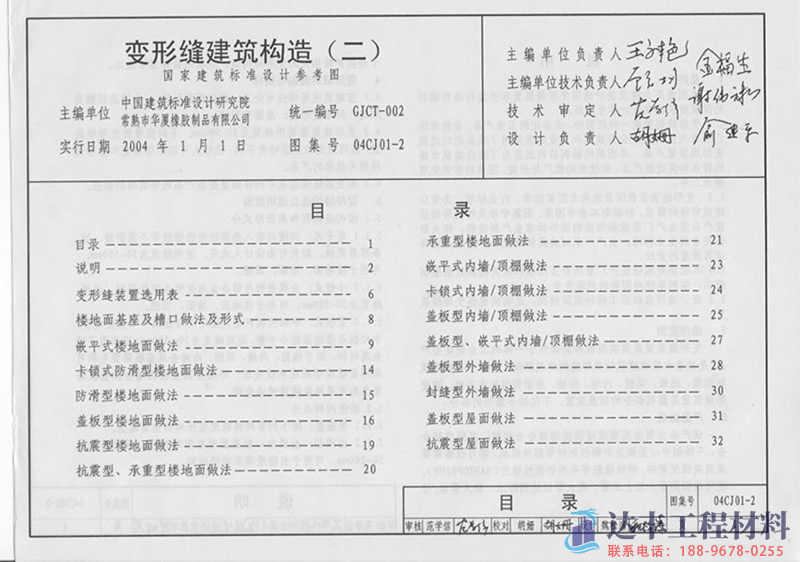 变形缝建筑构造（二）
国家建筑标准设计参考图
主编单位 中国建筑标准设计研究院
常熟市华厦橡胶制品有限公司
统一编号 GJCT-002
实行日期 2004 年 1 月 1 日
图集号 04CJ01-2
主编单位负责人
主编单位技术负责人
技术审定人
设计负责人 胡姗
目 录
目录 1
说明 2
变形缝装置选用表 6
楼地面基座及槽口做法及形式 8
嵌平式楼地面做法 9
卡锁式防滑型楼地面做法 14
防滑型楼地面做法 15
盖板型楼地面做法 16
抗震型楼地面做法 19
抗震型、承重型楼地面做法 20
承重型楼地面做法 21
嵌平式内墙/顶棚做法 23
卡锁式内墙/顶棚做法 24
盖板型内墙/顶棚做法 25
盖板型、嵌平式内墙/顶棚做法 27
盖板型外墙做法 28
封缝型外墙做法 30
盖板型屋面做法 31
抗震型屋面做法 32
目 录
图集号 04CJ01-2
审核 范学信 校对 胡姗 胡姗
达丰工程材料
联系电话：188-9678-0255